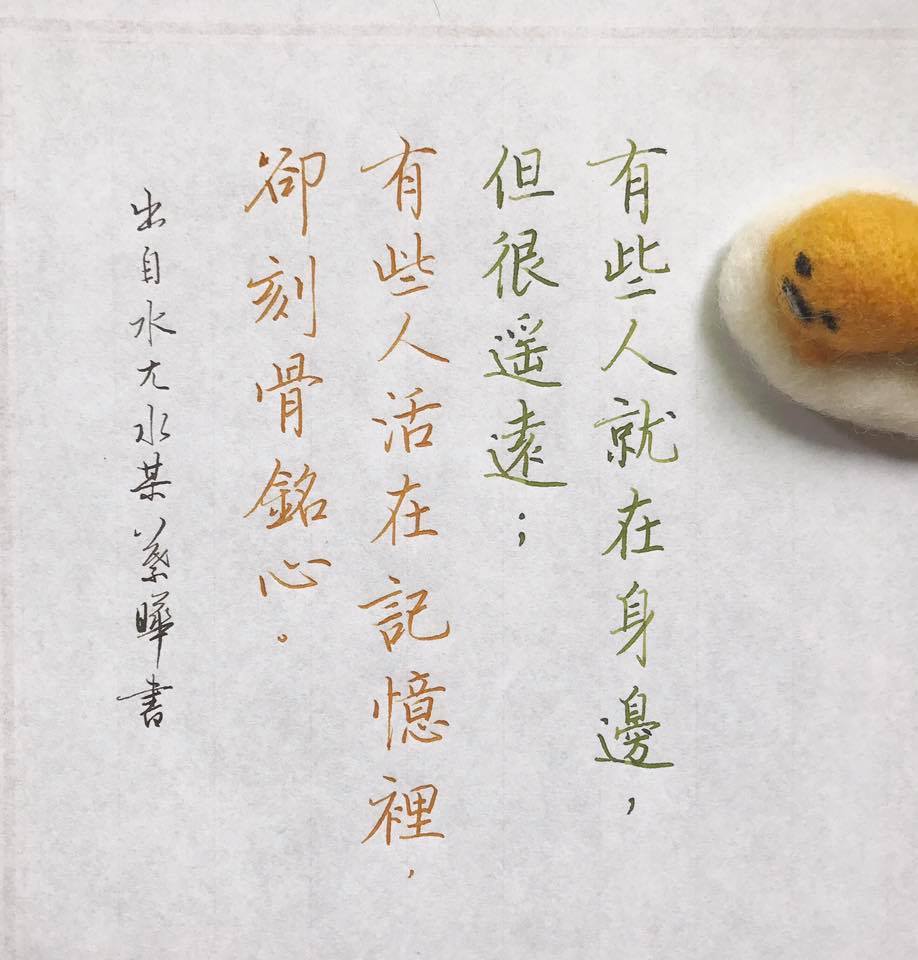 有些人就在身邊，
但很遥遠；
有些人活在記憶裡，
卻刻骨銘心。
出自水尢水某 葉曄書